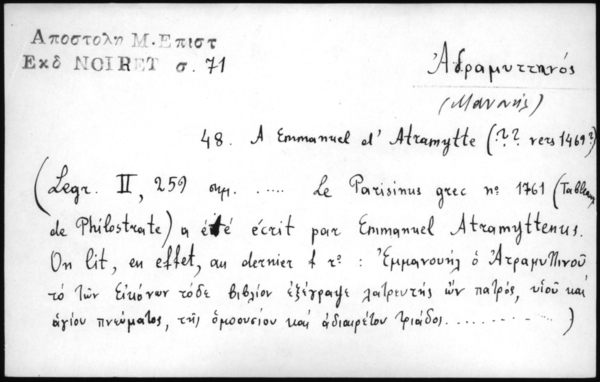 Αποστολη Μ. Επιστ
Εκδ NOIRET σ. 71
Ἀδραμυττηνός
(Μανουήλ)
48. A Emmanuel d' Atramytte (?? vers 1469?)
(Legr. II, 259 σημ. ..... Le Parisinus grec nº 1761 (Tableaux
de Philostrate) a été écrit par Emmanuel Atramyttenus.
On lit, en effet, au dernier f rº : Ἐμμανουήλ ὁ Ἀτραμυττινοῦ
τό τῶν Εἰκόνων τόδε βιβλίον ἐξέγραψε λατρευτής ὤν πατρός, υἱοῦ καί
ἁγίου πνεύματος, τῆς ὁμοουσίου καί ἀδιαιρέτου τριάδος..........)